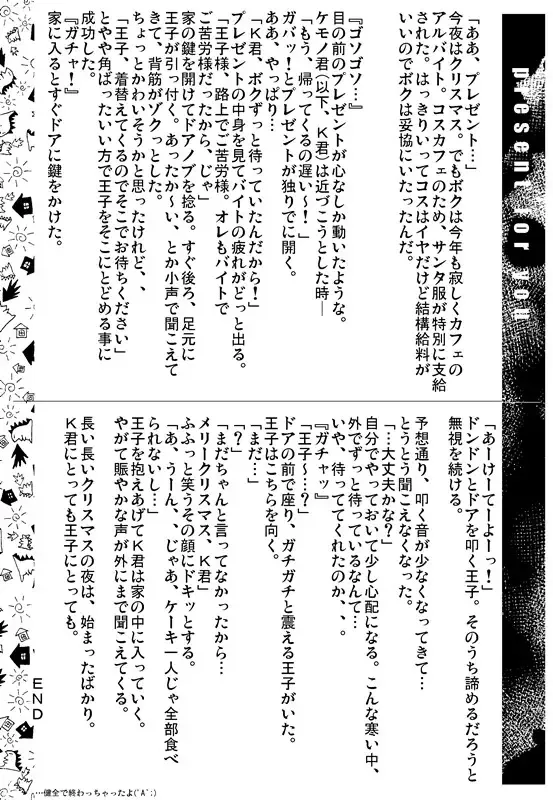 present for you
「ああ、プレゼント…」
今夜はクリスマス。でもボクは今年も寂しくカフェの
アルバイト。コスカフェのため、サンタ服が特別に支給
された。はっきりいってコスはイヤだけど結構給料が
いいのでボクは妥協にいたったんだ。
『ゴソゴソ…』
目の前のプレゼントが心なしか動いたような。
ケモノ君(以下、K君)は近づこうとした時―
「もう、帰ってくるの遅い～！」
ガバッ！とプレゼントが独りでに開く。
ああ、やっぱり…
「K君、ボクずっと待っていたんだから！」
プレゼントの中身を見てバイトの疲れがどっと出る。
「王子様、路上でご苦労様。オレもバイトで
ご苦労様だったから、じゃ」
家の鍵を開けてドアノブを捻る。すぐ後ろ、足元に
王子が引っ付く。あったか～い、とか小声で聞こえて
きて、背筋がゾクっとした。
ちょっとかわいそうかと思ったけれど、、
「王子、着替えてくるのでそこでお待ちください」
とやや角ばったいい方で王子をそこにとどめる事に
成功した。
『ガチャ！』
家に入るとすぐドアに鍵をかけた。
「あーけーてーよーっ！」
ドンドンとドアを叩く王子。そのうち諦めるだろうと
無視を続ける。
予想通り、叩く音が少なくなってきて…
とうとう聞こえなくなった。
「…大丈夫かな？」
自分でやっておいて少し心配になる。こんな寒い中、
外でずっと待っているなんて…
いや、待っててくれたのか、、。
『ガチャッ』
「王子～…？」
ドアの前で座り、ガチガチと震える王子がいた。
「まだ…」
王子はこちらを向く。
「？」
「まだちゃんと言ってなかったから…
メリークリスマス、K君」
ふふっと笑うその顔にドキッとする。
「あ、うーん、、じゃあ、ケーキ一人じゃ全部食べ
られないし…」
王子を抱えあげてK君は家の中に入っていく。
やがて賑やかな声が外にまで聞こえてくる。
長い長いクリスマスの夜は、始まったばかり。
K君にとっても王子にとっても。
END
…健全で終わっちゃったよ(´A`;)